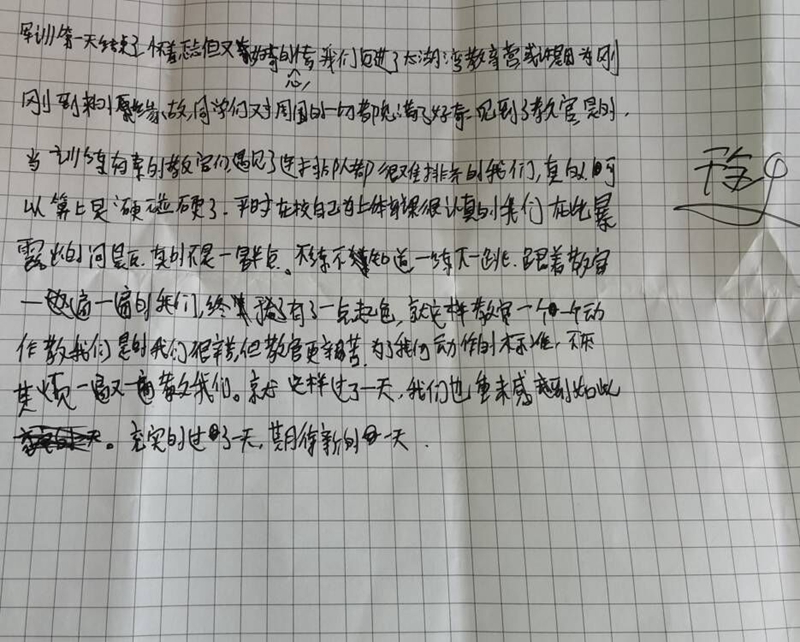 军训第一天结束了怀着忐忑但又好奇的心情我们迈进了太湖湾教育营或许是因为刚
刚到来的缘故,同学们对周围的一切都充满了好奇:见到了教官是的.
当训练有素的教官们遇见了连排队都很难排齐的我们,真的可
以算上是硬碰硬了.平时在校自己为上体育课很认真的我们在此暴
露出的问题真的不是一星半点。不练不知道一练吓一跳.跟着教官
一遍一遍的我们,终有了一点起色,就这样教官一个一个动
作教我们是的我们很辛苦,但教官更辛苦.为了我们动作的标准,不厌
其烦一遍又一遍教我们。就这样过了一天,我们也重来感到如此
。充实的过了一天,期待新的一天.